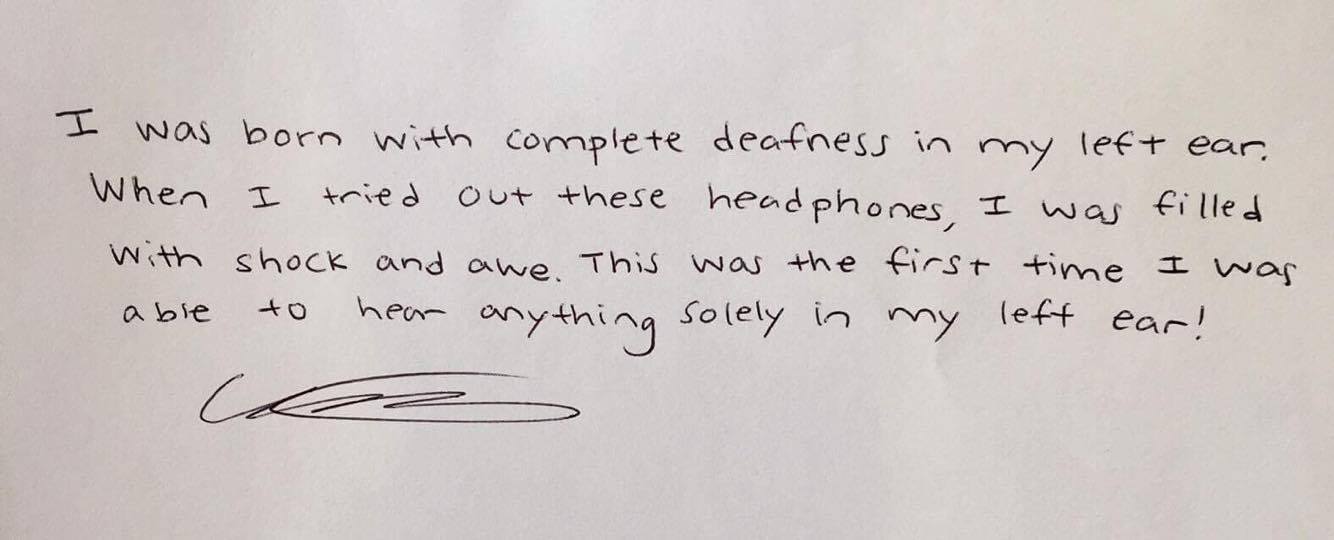 I was born with complete deafness in my left ear.
When I tried out these headphones, I was filled
with shock and awe. This was the first time I was
able to hear anything solely in my left ear!